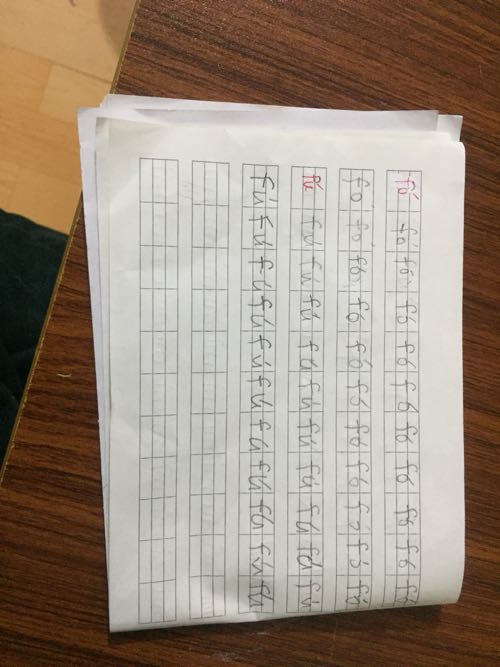 fó fó fó fó fó fó fó fó fó fó fó
fo fó fó fó fó fó fó fó fó fó fó
fú fú fú fú fú fú fú fú fú fú fú
fú fú fú fú fú fú fú fú fú fú fú